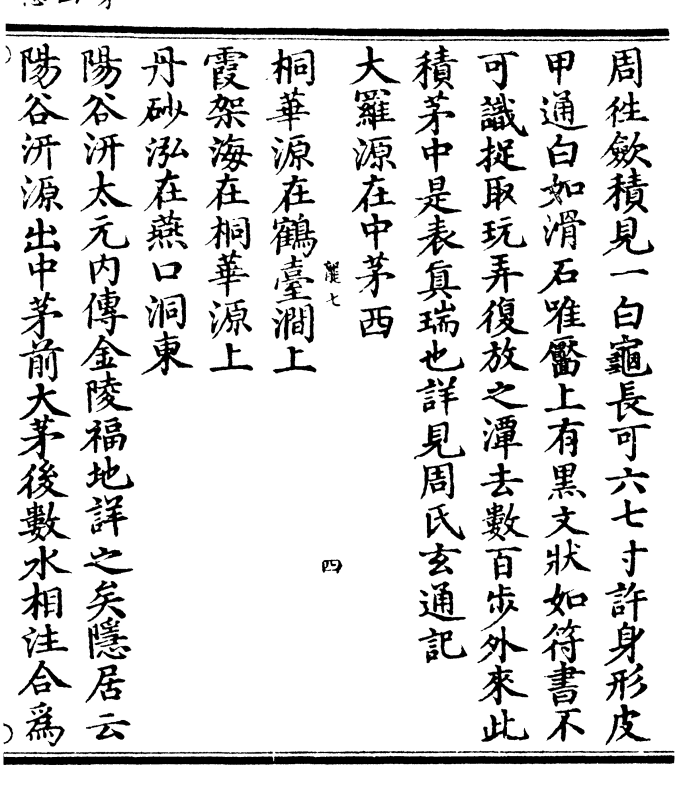 周徃歛積見一白龜長可六七寸許身形皮
甲通白如滑石唯靨上有黒文狀如符書不
可識捉取玩弄復放之潭去數百步外來此
積茅中是表眞瑞也詳見周氏玄通記
大羅源在中茅西
四
桐華源在鶴臺澗上
霞架海在桐華源上
丹砂泓在燕口洞東
陽谷汧太元内傳金陵福地詳之矣隱居云
陽谷汧源出中茅前大茅後數水相注合爲